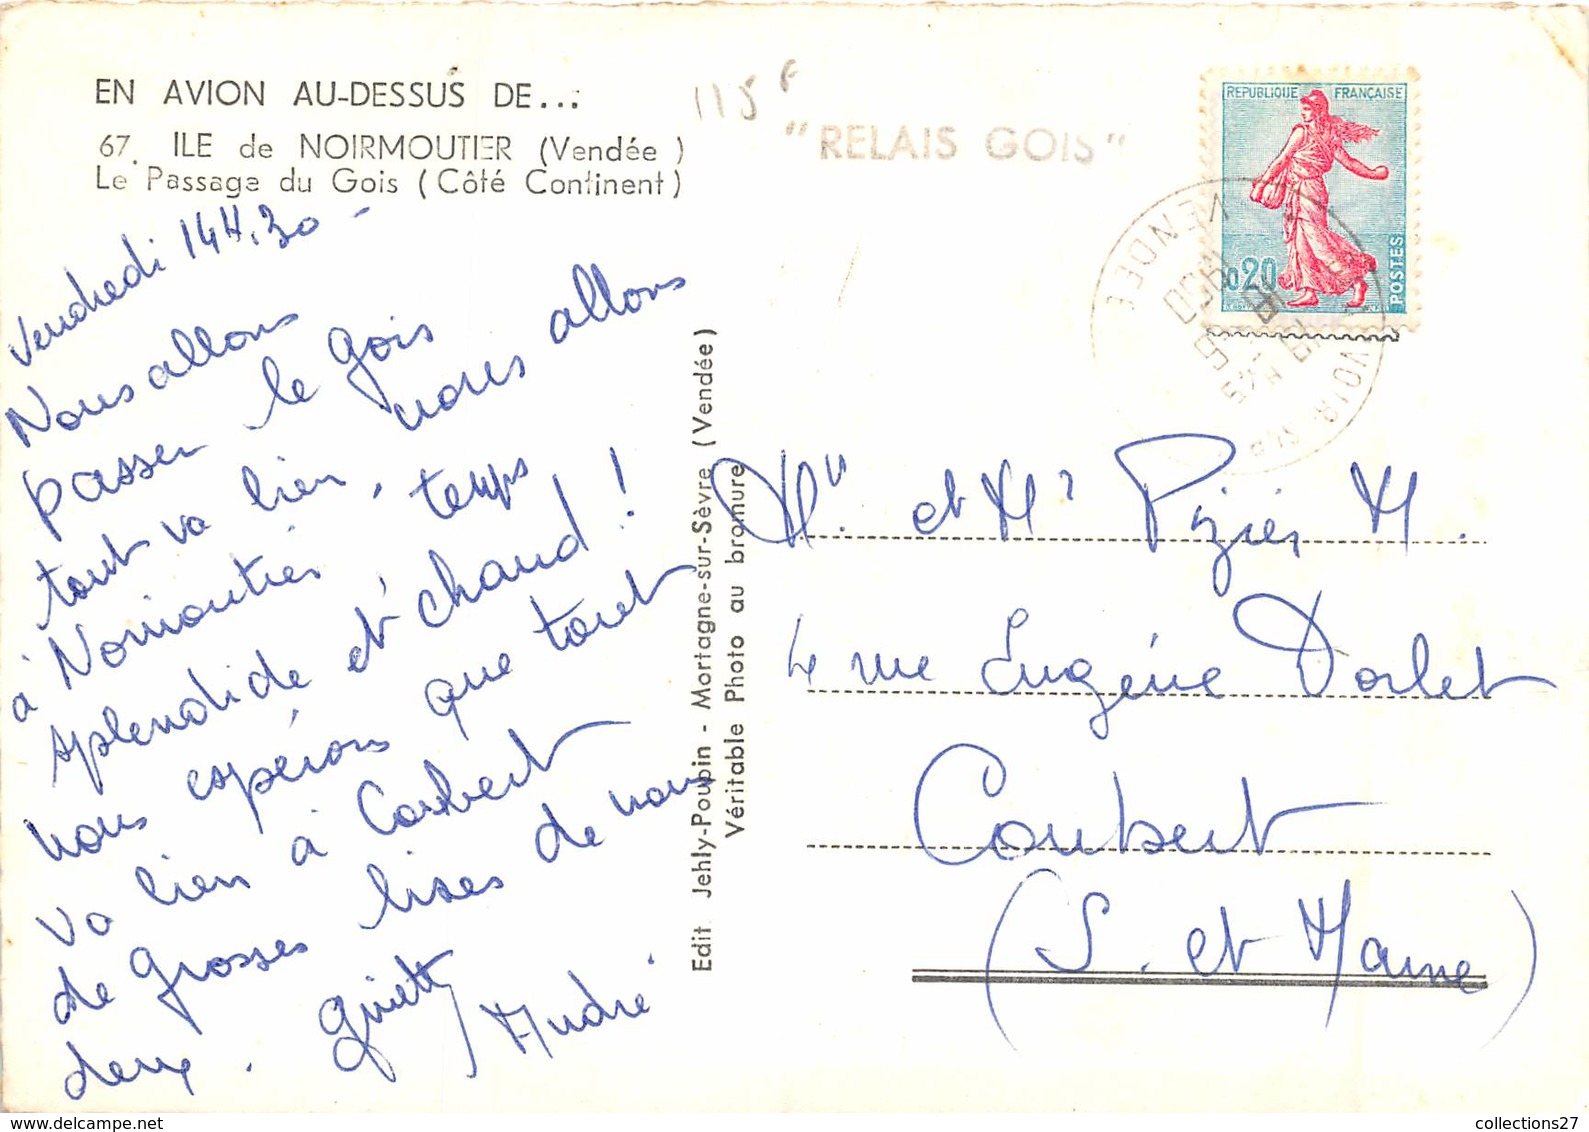 EN AVION AU-DESSUS DE...
67. ILE de NOIRMOUTIER (Vendée)
Le Passage du Gois (Côté Continent)
115 F
"RELAIS GOIS"
REPUBLIQUE FRANÇAISE
0,20
POSTES
VENDEE
Vendredi 14H.30 -
Nous allons
passer le gois
tout va bien, nous allons
à Nomoutiés temps
splendide et chaud !
nous espérons que tout
va bien à Coubert
de grosses bises de nous
deux. Ginette André
Edit Jehly-Poupin - Mortagne-sur-Sèvre (Vendée)
Véritable Photo au bromure
et Mr Pizier M.
4 rue Eugène Dorlet
Coubert
(S. et Marne)
collections27